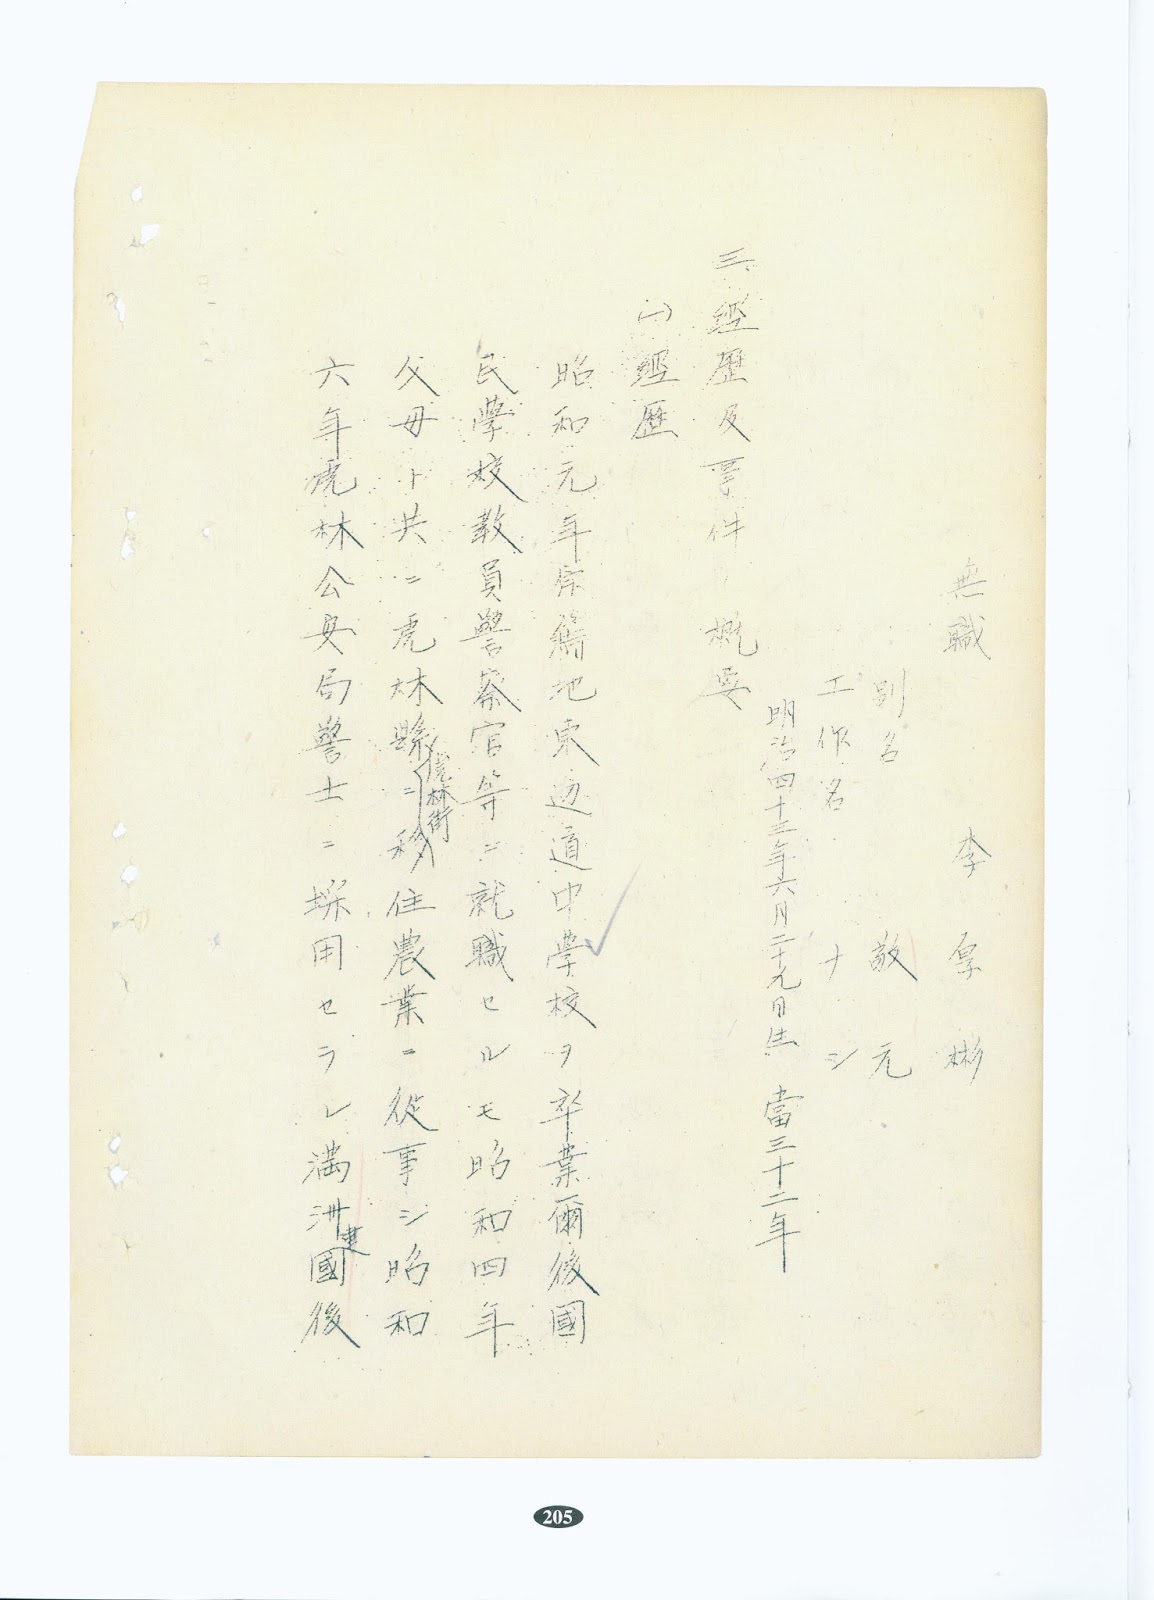 無職
李厚彬
別名 敬元
工作名 ナシ
明治四十三年六月二十九日生 當三十二年
三、經歷及事件 概要
(一)經歷
昭和元年原籍地東辺道中學校ヲ卒業爾後國
民學校教員警察官等ニ就職セルモ昭和四年
父母ト共ニ虎林縣虎林街ニ移住農業ニ從事シ昭和
六年虎林公安局警士ニ採用セラレ満洲建國後
205